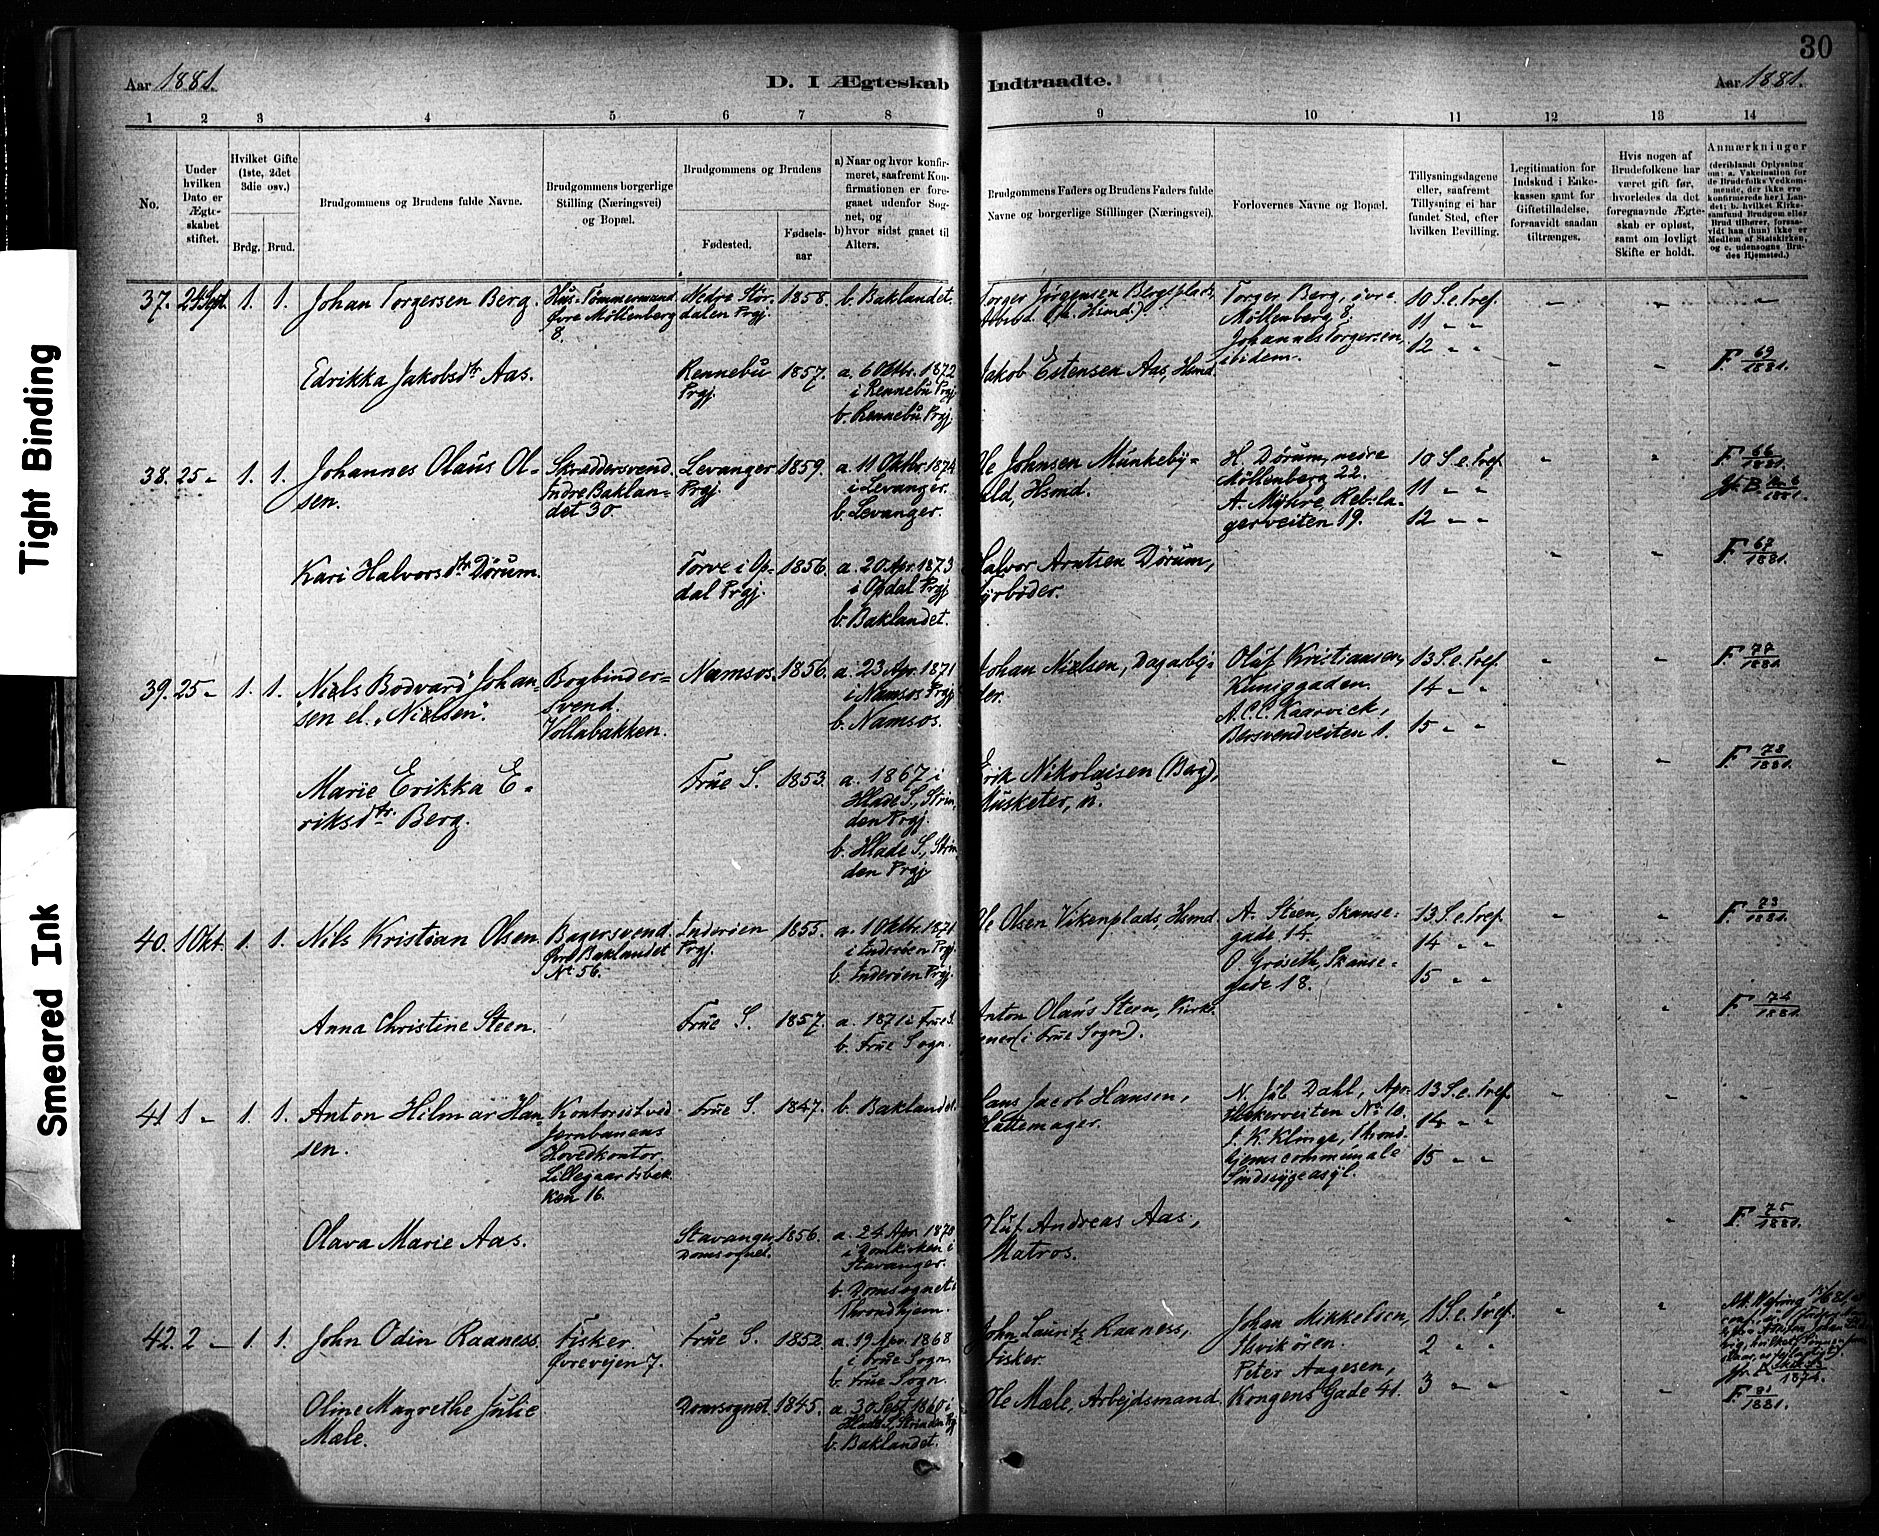 30
Aar 1881.
D. I Ægteskab Indtraadte.
Aar 1881.
1 2 3 4 5 6 7 8 9 10 11 12 13 14
No.
Under
hvilken
Dato er
Ægte-
skabet
stiftet.
Hvilket Gifte
(1ste, 2det
3die osv.)
Brdg. Brud.
Brudgommens og Brudens fulde Navne.
Brudgommens borgerlige
Stilling (Næringsvei)
og Bopæl.
Brudgommens og Brudens
Fødested.
Fødsels-
aar
a) Naar og hvor konfir-
meret, saafremt Kon-
firmationen er fore-
gaaet udenfor Sog-
net, og
b) hvor sidst gaaet til
Alters.
Brudgommens Faders og Brudens Faders fulde
Navne og borgerlige Stillinger (Næringsvei).
Forlovernes Navne og Bopæl.
Tillysningsdagene
eller, saafremt
Tillysning ei har
fundet Sted, efter
hvilken Bevilling.
Legitimation for
Indskud i Enke-
kassen samt for
Giftetilladelse,
forsaavidt saadan
tiltrænges.
Hvis nogen af
Brudefolkene har
været gift før,
hvorledes da det
foregaaende Ægte-
skab er opløst,
samt om lovligt
Skifte er holdt.
Anmærkninger
(deriblandt Oplysning
om: a. Vakcination for
de Brudefolks Vedkom-
mende, der ikke ere
konfirmerede her i Lan-
det; b. hvilket Kirke-
samfund Brudgom eller
Brud tilhører, forsaa-
vidt han (hun) ikke er
Medlem af Statskirken,
og c. udensogns Bru-
des Hjemsted.)
37. 24 Sept. 1. 1. Johan Torgersen Berg.
Hus-Tømmermand
Øvre Møllenberg
8.
Nedre Stør-
dalen Prgj.
1858.
b. Baklandet.
Torger Jørgensen Bergsplads,
Arbbd. (fh. Hsmd.)
Torger Berg, øvre
Møllenberg 8.
Johannes Torgersen,
ibidem.
10 S. e. Tref.
11 " "
12 " "
Edrikka Jakobsdtr Aas.
Rennebu
Prgj.
1857.
a. 6 Oktbr. 1872
i Rennebu Prgj
b. Rennebu Prgj.
Jakob Estensen Aas, Hsmd
F. 69/1881.
38. 25 " 1. 1. Johannes Olaus Ol-
sen.
Skræddersvend.
Indre Baklan-
det 30.
Levanger
Prgj.
1859.
a. 11 Oktbr. 1874
i Levanger.
b. Levanger.
Ole Johnsen Munkeby-
ald, Hsmd.
H. Dørum, nedre
Møllenberg 22.
A. Myhre, Rebsla-
gerveiten 19.
10 S. e. Tref.
11 " "
12 " "
F. 66/1881.
Kari Halvorsdtr Dørum.
Torve i Op-
dal Prgj.
1856.
a. 20 Apr. 1873
i Opdal Prgj
b. Baklandet.
Halvor Arntsen Dørum,
Fyrbøder.
F. 67/1881.
39. 25 " 1. 1. Niels Bodvard Johan-
sen el. "Nielsen".
Bogbinder-
svend.
Vollabakken.
Namsos.
1856.
a. 23 Apr. 1871
i Namsos Prgj
b. Namsos.
Johan Nielsen, Dagarbei-
der.
Oluf Kristiansen,
Kuniggaden.
A. C. C. Kaarvick,
Bersvendveiten 1.
13 S. e. Tref.
14 " "
15 " "
F. 77/1881.
Marie Erikka E-
riksdtr. Berg.
Frue S.
1853.
a. 1867 i
Hlade S., Strin-
den Prgj.
b. Hlade S., Strin-
den Prgj
Erik Nikolaisen (Berg),
Musketer, n.
F. 78/1881.
40. 1 Okt. 1. 1. Nils Kristian Olsen.
Bagersvend.
Øvre Baklandet
No 56.
Inderøen
Prgj.
1855.
a. 1 Oktbr. 1871
i Inderøen Prgj.
b. Inderøen Prgj.
Ole Olsen Vikenplads, Hsmd
A. Steen, Skanse-
gade 14.
O. Grøseth, Skanse-
gade 18.
13 S. e. Tref.
14 " "
15 " "
F. 73/1881.
Anna Christine Steen.
Frue S.
1857.
a. 1871 i Frue S.
b. Frue Sogn.
Anton Olaus Steen, Kirke-
tjener (i Frue Sogn).
F. 74/1881.
41 1 " 1. 1. Anton Hilmar Han-
sen.
Kontorist ved
Jernbanens
Hovedkontor.
Lillegaardsbak-
ken 16.
Frue S.
1847.
b. Baklandet.
Hans Jacob Hansen,
Hattemager.
N. Jul Dahl, Apo-
thekerveiten No 10.
J. K. Klinge, Thrond-
hjems communale
Sindssygeasyl.
13 S. e. Tref.
14 " "
15 " "
Olava Marie Aas.
Stavanger
Domsognet.
1856.
a. 24 Apr. 1870
i Domkirken i
Stavanger.
b. Domsognet i
Throndhjem.
Oluf Andreas Aas,
Matros.
F. 75/1881.
42. 2 " 1. 1. John Odin Raaness.
Fisker.
Øvreveien 7.
Frue S.
1852.
a. 19 Apr. 1868
i Frue Sogn
b. Frue Sogn.
John Lauritz Raaness,
Fisker.
Johan Mikkelsen,
Ihsvikøren.
Peter Aagesen,
Kongens Gade 41.
1 S. e. Tref.
2 " "
3 " "
Oline Magrethe Julie
Mæle.
Domsognet.
1845.
a. 30 Sept. 1860 i
Hlade S., Strinden Prgj
b. Baklandet.
Ole Mæle, Arbejdsmand
F. 81/1881.
Tight Binding
Smeared Ink